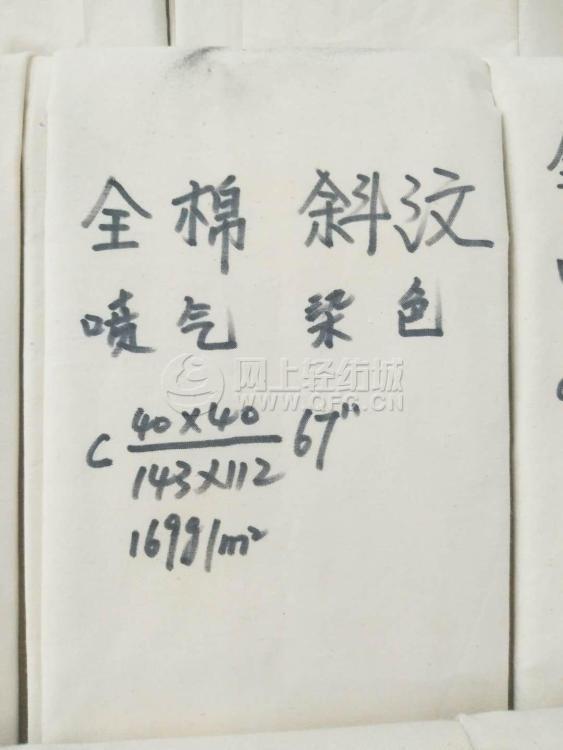 全棉 斜汶
喷气 染色
网上轻纺城
WWW.QFC.CN
C 40×40 67"
143×112
169g/m²